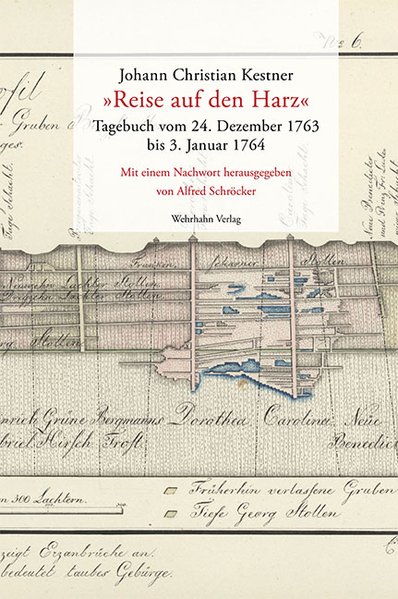 No 6.
Johann Christian Kestner
»Reise auf den Harz«
Tagebuch vom 24. Dezember 1763
bis 3. Januar 1764
Mit einem Nachwort herausgegeben
von Alfred Schröcker
Wehrhahn Verlag
ofil
r Gruben B
ges.
Stollen
Neunzehn Lachter Stollen
Stollen
rg Stollen
inrich Grüne Bergmanns Dorothea, Carolina, Neue
briel Hirsch Trost. Benedict
n 300 Lachtern. 300
Früherhin verlassene Gruben
Tiefe Georg Stollen
zeigt Erzanbrüche an.
bedeutet taubes Gebürge.